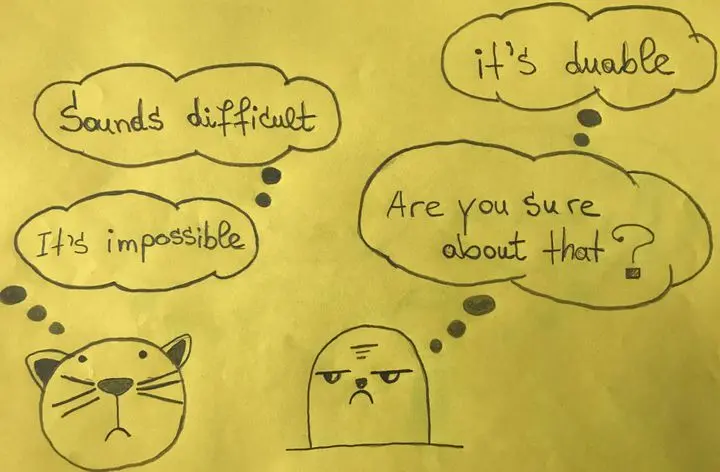 it's duable
Sounds difficult
Are you sure
about that?
It's impossible